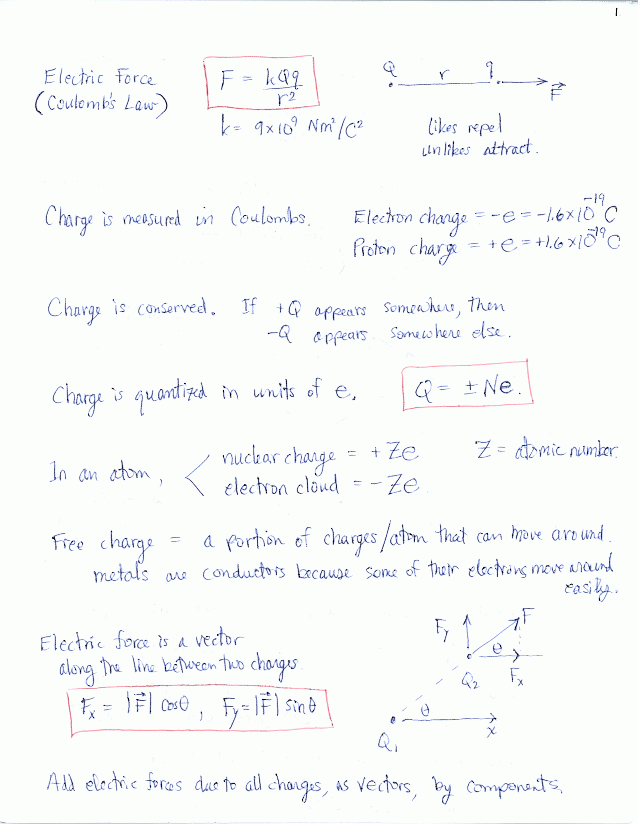 1
Electric Force
(Coulomb's Law)
F = kQq/r²
k = 9×10⁹ Nm²/C²
Q r q F⃗
likes repel
unlikes attract.
Charge is measured in Coulombs.
Electron charge = -e = -1.6×10⁻¹⁹ C
Proton charge = +e = +1.6×10⁻¹⁹ C
Charge is conserved. If +Q appears somewhere, then
-Q appears somewhere else.
Charge is quantized in units of e.
Q = ±Ne.
In an atom,
nuclear charge = +Ze
electron cloud = -Ze
Z = atomic number.
Free charge = a portion of charges/atom that can move around.
metals are conductors because some of their electrons move around
easily.
Electric force is a vector
along the line between two charges
Fx = |F⃗| cosθ, Fy = |F⃗| sinθ
Fy F
θ
Q₂ Fx
θ
Q₁ x
Add electric forces due to all charges, as vectors, by components.